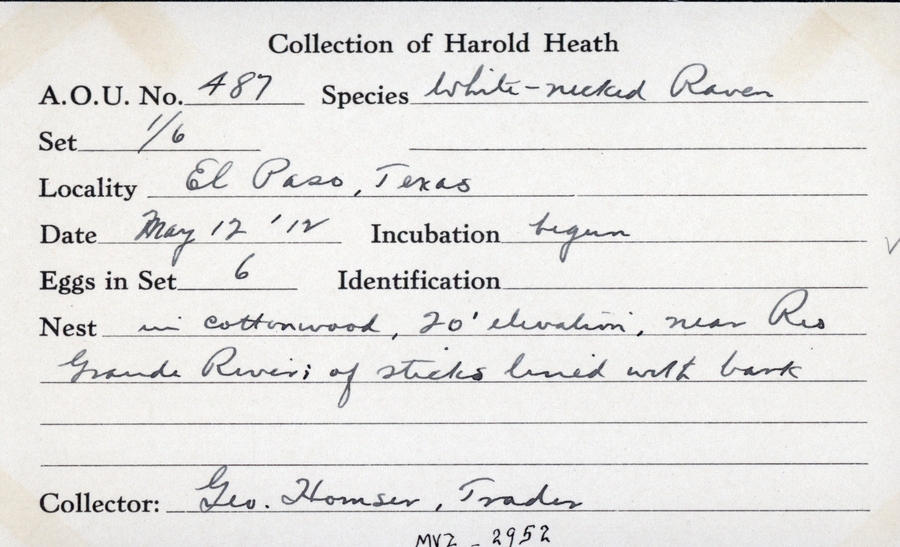 Collection of Harold Heath
A.O.U. No. 487 Species White-necked Raven
Set 1/6
Locality El Paso, Texas
Date May 12 '12 Incubation begun
Eggs in Set 6 Identification
Nest in cottonwood, 20' elevation, near Rio
Grande River; of sticks lined with bark
Collector: Geo. Homser, Trader
MVZ - 2952